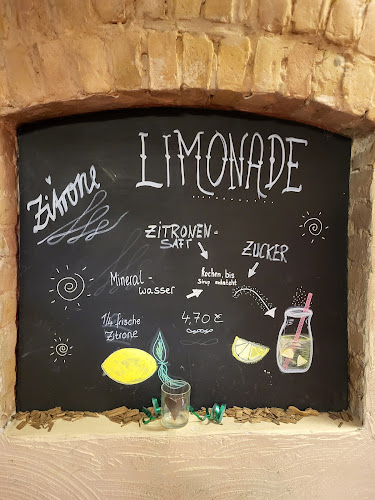 LIMONADE
Zitrone
ZITRONEN-
SAFT
ZUCKER
Mineral-
wasser
Kochen, bis
Sirup entsteht
1/4 frische
Zitrone
4,70 €